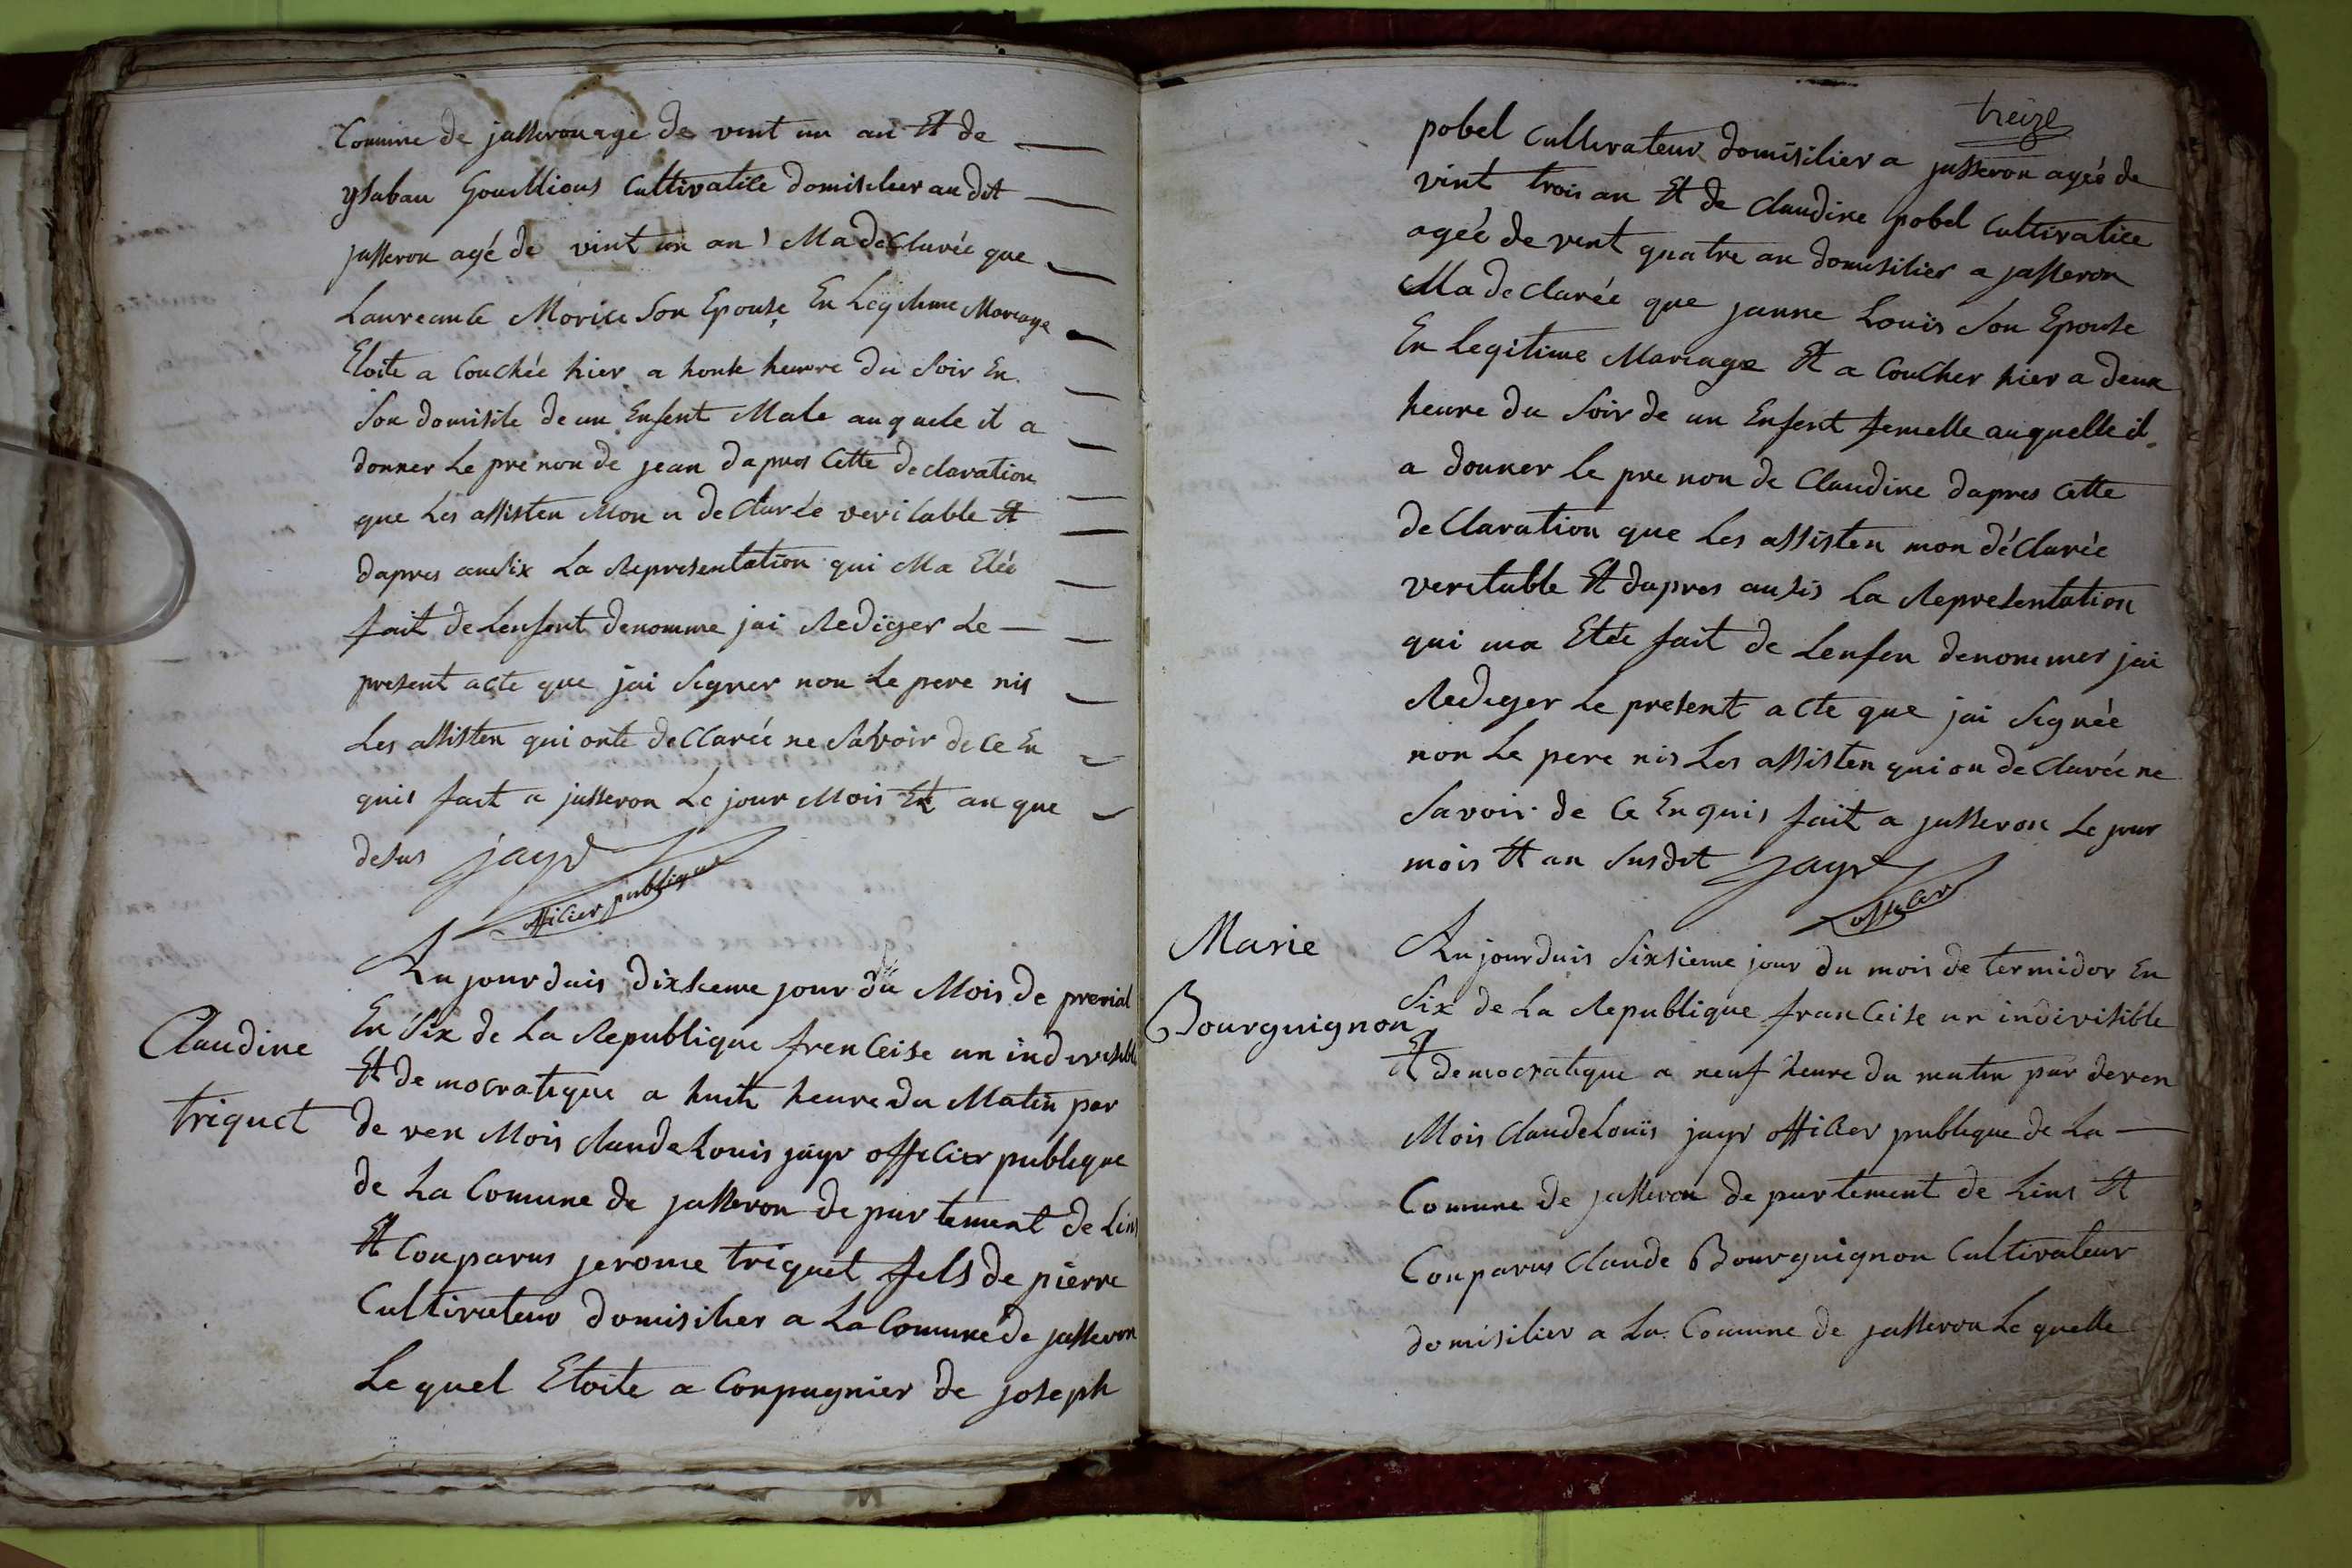 Comune de jasseron agé de vent un an Et de
ysabau Gouillious Cultivatice domisilier au dit
jasseron agé de vint un an Ma declarée que
Laureanle Morice Son Epouse En Legitime Mareage
Etoite a Couchée hier a honse heurre du Soir En
Son domisile de un Enfent Male auquele il a
donner Le prenon de jean dapres Cette declaration
que Les assisten Mon a declarée veritable Et
dapres ausix La Representation qui Ma Etée
fait de Lenfent denomme jai Rediger Le
present acte que jai Signer non Le pere nis
Les assisten qui onte declarée ne Savoir de Ce En
quis fait a jasseron Le jour Mois Et an que
desus jayr
officier publique
Claudine
triquet
Aujourduis dixsieme jour du Mois de prerial
En Six de La Republique frenceise un indivisible
Et democratique a huit heure du Matin par
deven Mois Claude Louis jayr officier publique
de La Comune de jasseron departement de Lins
Et Conparus jerome triquet fils de pierre
Cultivateur domisilier a La Comune de jasseron
Le quel Etoite a Conpagnier de joseph
treize
pobel Cultivateur domisilier a jasseron ageé de
vint trois an Et de Claudine pobel Cultivatice
ageé de vent quatre an domisilier a jasseron
Ma declarée que janne Louis Son Epouse
En Legitime Mareage Et a Coucher hier a deux
heure du Soir de un Enfent femelle auquelle il
a donner Le prenon de Claudine dapres Cette
declaration que Les assisten mon déclarée
veritable Et dapres ausis La Representation
qui ma Etée fait de Lenfen denommer jai
Rediger Le present acte que jai Signée
non Le pere nis Les assisten qui on déclarée ne
Savoir de Ce Enquis fait a jasseron Le jour
mois Et an Susdit Jayr
officier
Marie
Bourguignon
Aujourduis Sixsieme jour du mois de termidor En
Six de La Republique franceise un indivisible
Et democratique a neuf heure du matin par deven
Mois Claude Louis jayr officier publique de La
Comune de jasseron departement de Lins Et
Conparus Claude Bourguignon Cultivateur
domisilier a La Comune de jasseron Le quelle